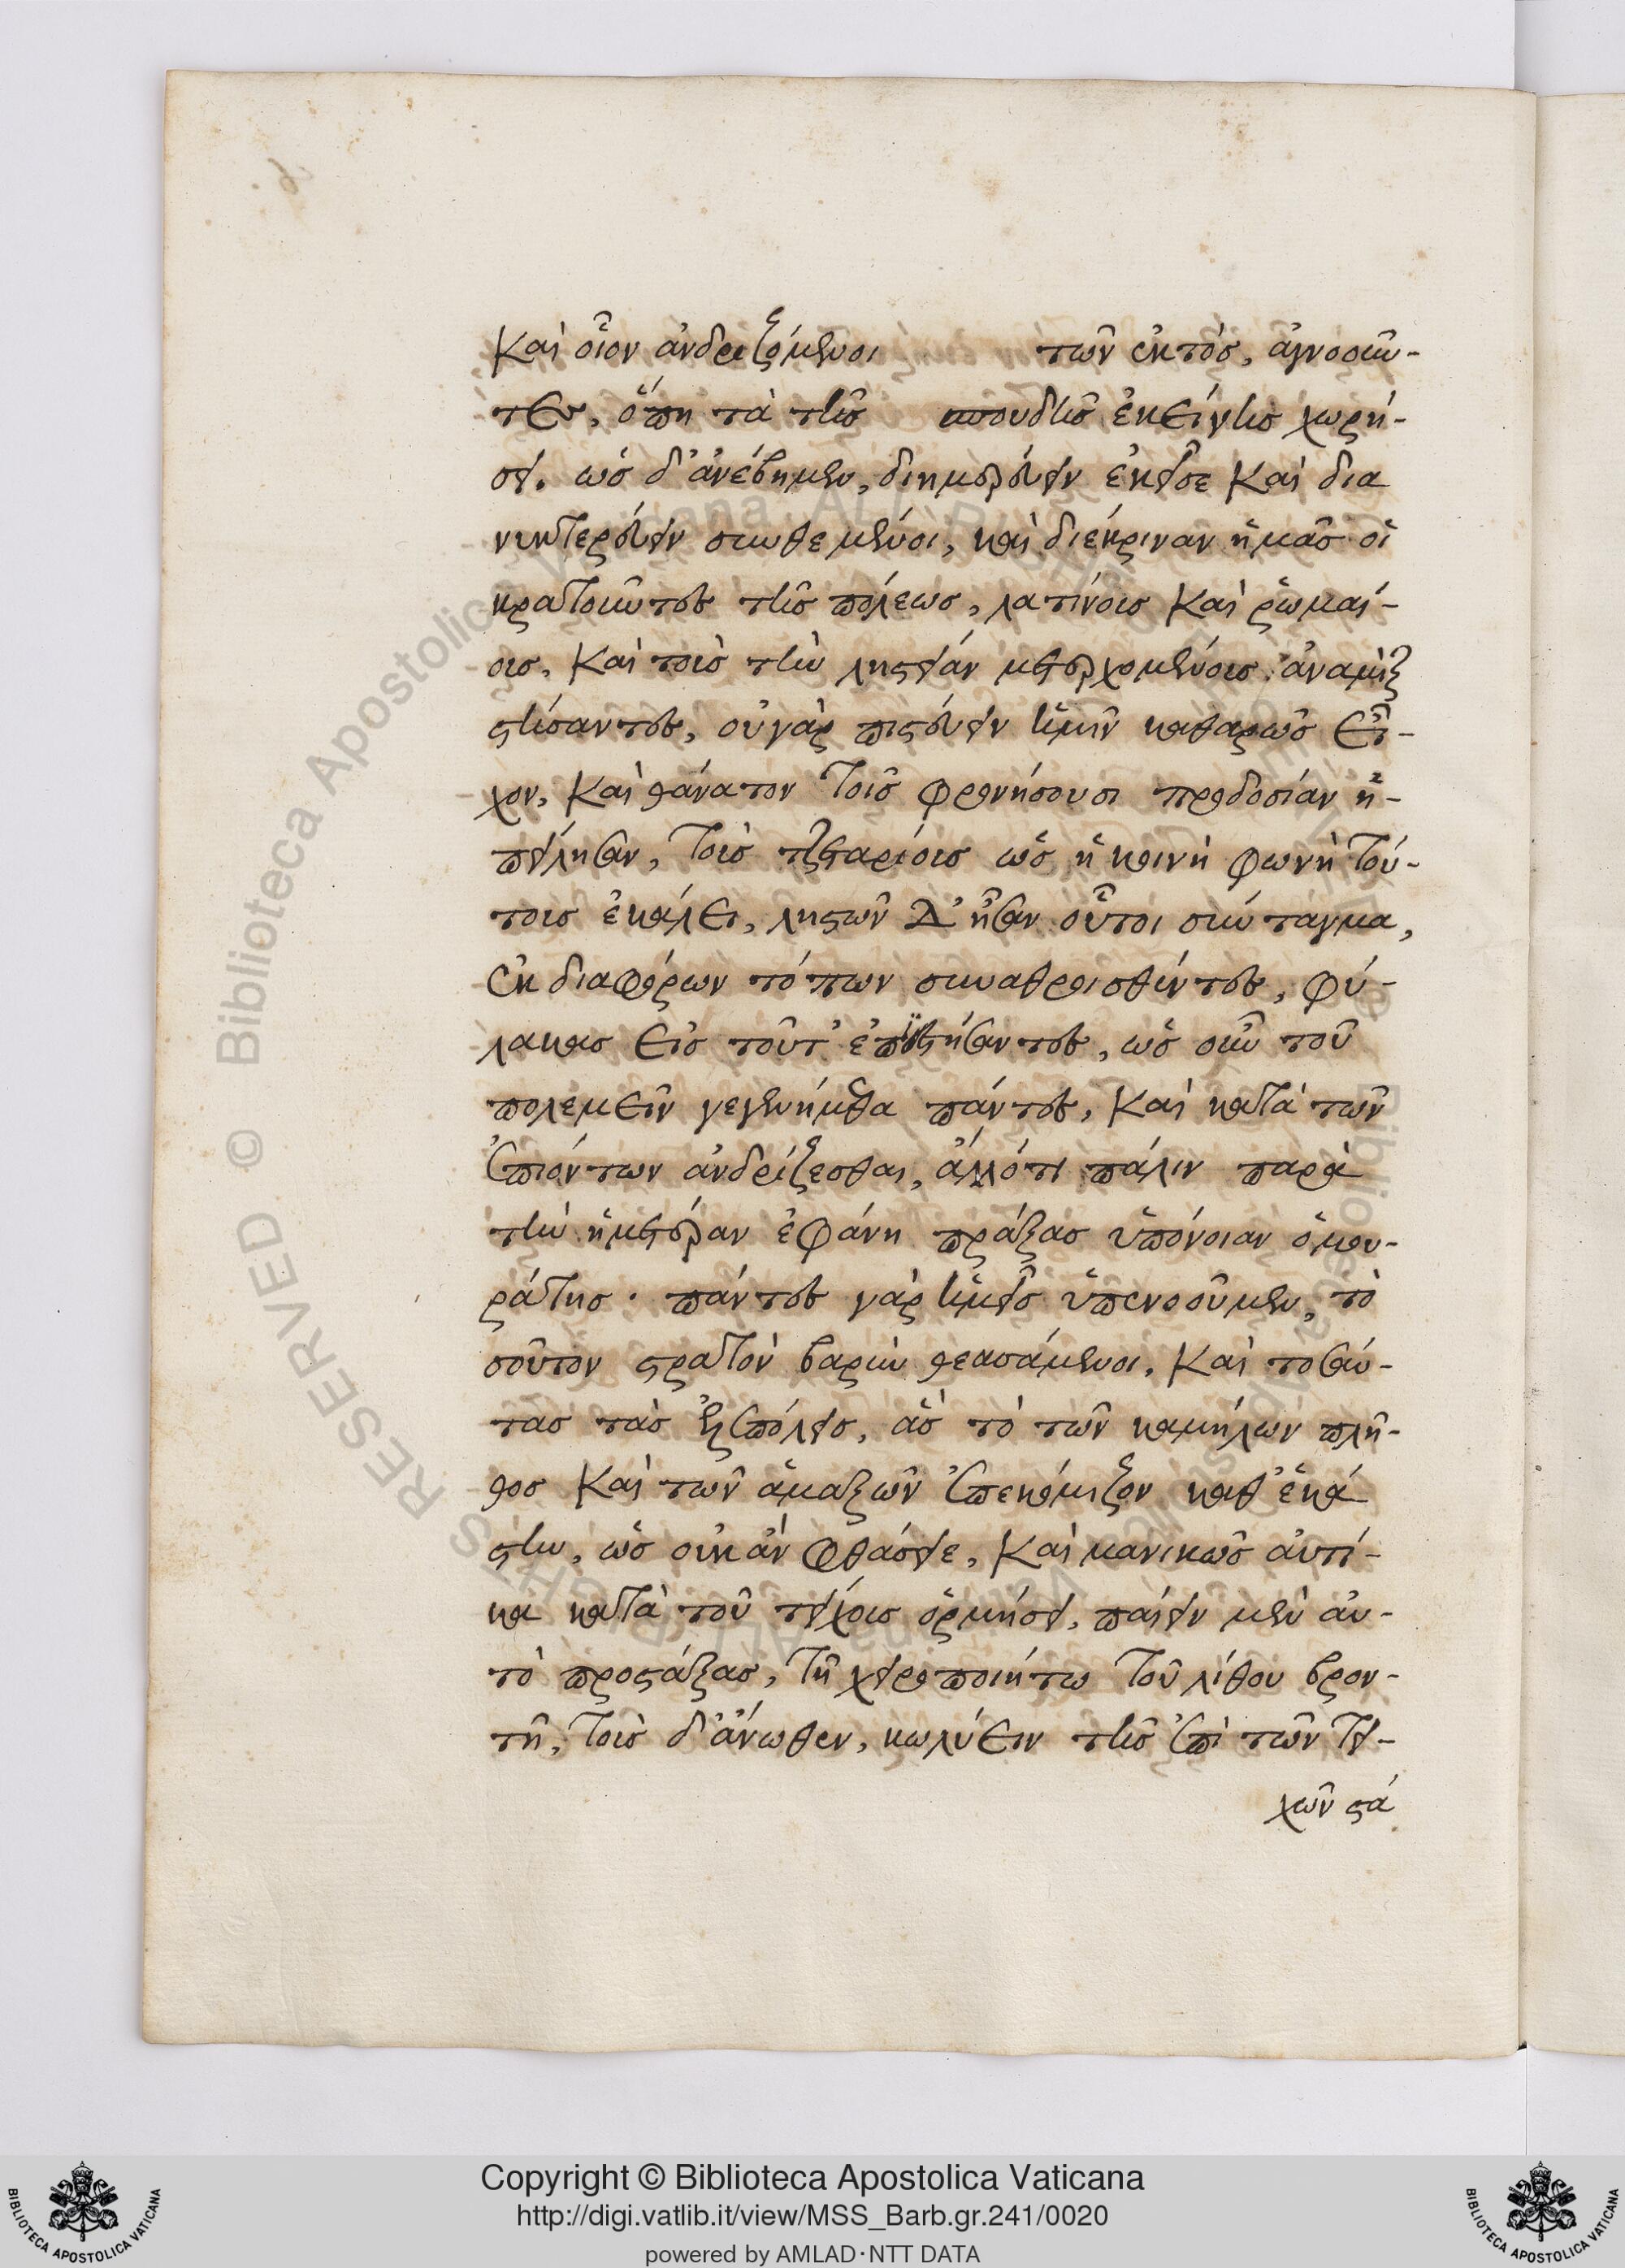 Καὶ οἷον ἀνδριζόμενοι τῶν ἐκτὸς, ἀγνοοῦν-
τες, ὅπη τὰ τῆς σπουδῆς ἐκείνης χωρή-
σει. ὡς δ' ἀνέβημεν, διημέρευειν ἐκεῖσε Καὶ δια
νυκτερεύειν συνθεμένοι, καὶ διέκριναν ἡμᾶς οἱ
κρατοῦντες τῆς πόλεως, λατίνοις Καὶ ῥωμαί-
οις, Καὶ τοῖς τὴν ληστείαν μετερχομένοις ἀναμὶξ
στήσαντες, οὐ γὰρ πιστεύειν ἡμῖν καθαρῶς εἶ-
χον, Καὶ θάνατον τοῖς φρονήσουσι προδοσίαν ἠ-
πείλησαν, τοῖς τζεταρίοις ὡς ἡ κοινὴ φωνὴ τού-
τοις ἐκάλει, ληστῶν δ' ἦσαν οὗτοι σύνταγμα,
ἐκ διαφόρων τόπων συναθροισθέντες, φύ-
λακας εἰς τοῦτ' ἐπιστήσαντες, ὡς οὖν τοῦ
πολεμεῖν γεγενήμεθα πάντες, Καὶ κατὰ τῶν
ἐπιόντων ἀνδρίζεσθαι, ἀλλότι πάλιν παρὰ
τὴν ἡμετέραν ἐφάνη πράξας ὑπόνοιαν ὁ μου-
ράτης. πάντες γὰρ ἡμεῖς ὑπενοοῦμεν, το
σοῦτον στρατὸν βαρὺν θεασάμενοι, Καὶ τοσαύ-
τας τὰς ἑξεπόλεις, ἃς τὸ τῶν καμήλων πλῆ-
θος Καὶ τῶν ἁμαξῶν ἐπεκόμιζον καθ' ἑκά
στην, ὡς οὐκ ἂν φθάσειε, Καὶ μανικῶς αὐτί-
κα κατὰ τοῦ τείχους ὁρμήσει, παίειν μὲν αὐ-
τὸ προστάξας, τῇ χειροποιήτω τοῦ λίθου βρον-
τῇ, τοῖς δ' ἄνωθεν, κωλύειν τῆς ἐπὶ τῶν τει-
χῶν στά
Copyright © Biblioteca Apostolica Vaticana
http://digi.vatlib.it/view/MSS_Barb.gr.241/0020
powered by AMLAD·NTT DATA